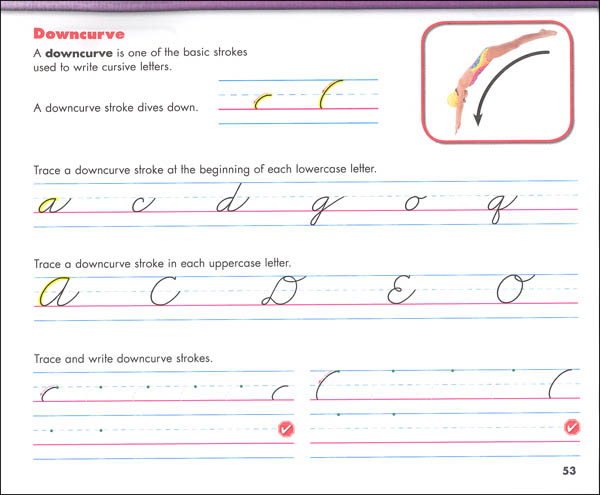 Downcurve
A downcurve is one of the basic strokes
used to write cursive letters.
A downcurve stroke dives down.
Trace a downcurve stroke at the beginning of each lowercase letter.
a c d g o q
Trace a downcurve stroke in each uppercase letter.
A C D E O
Trace and write downcurve strokes.
53